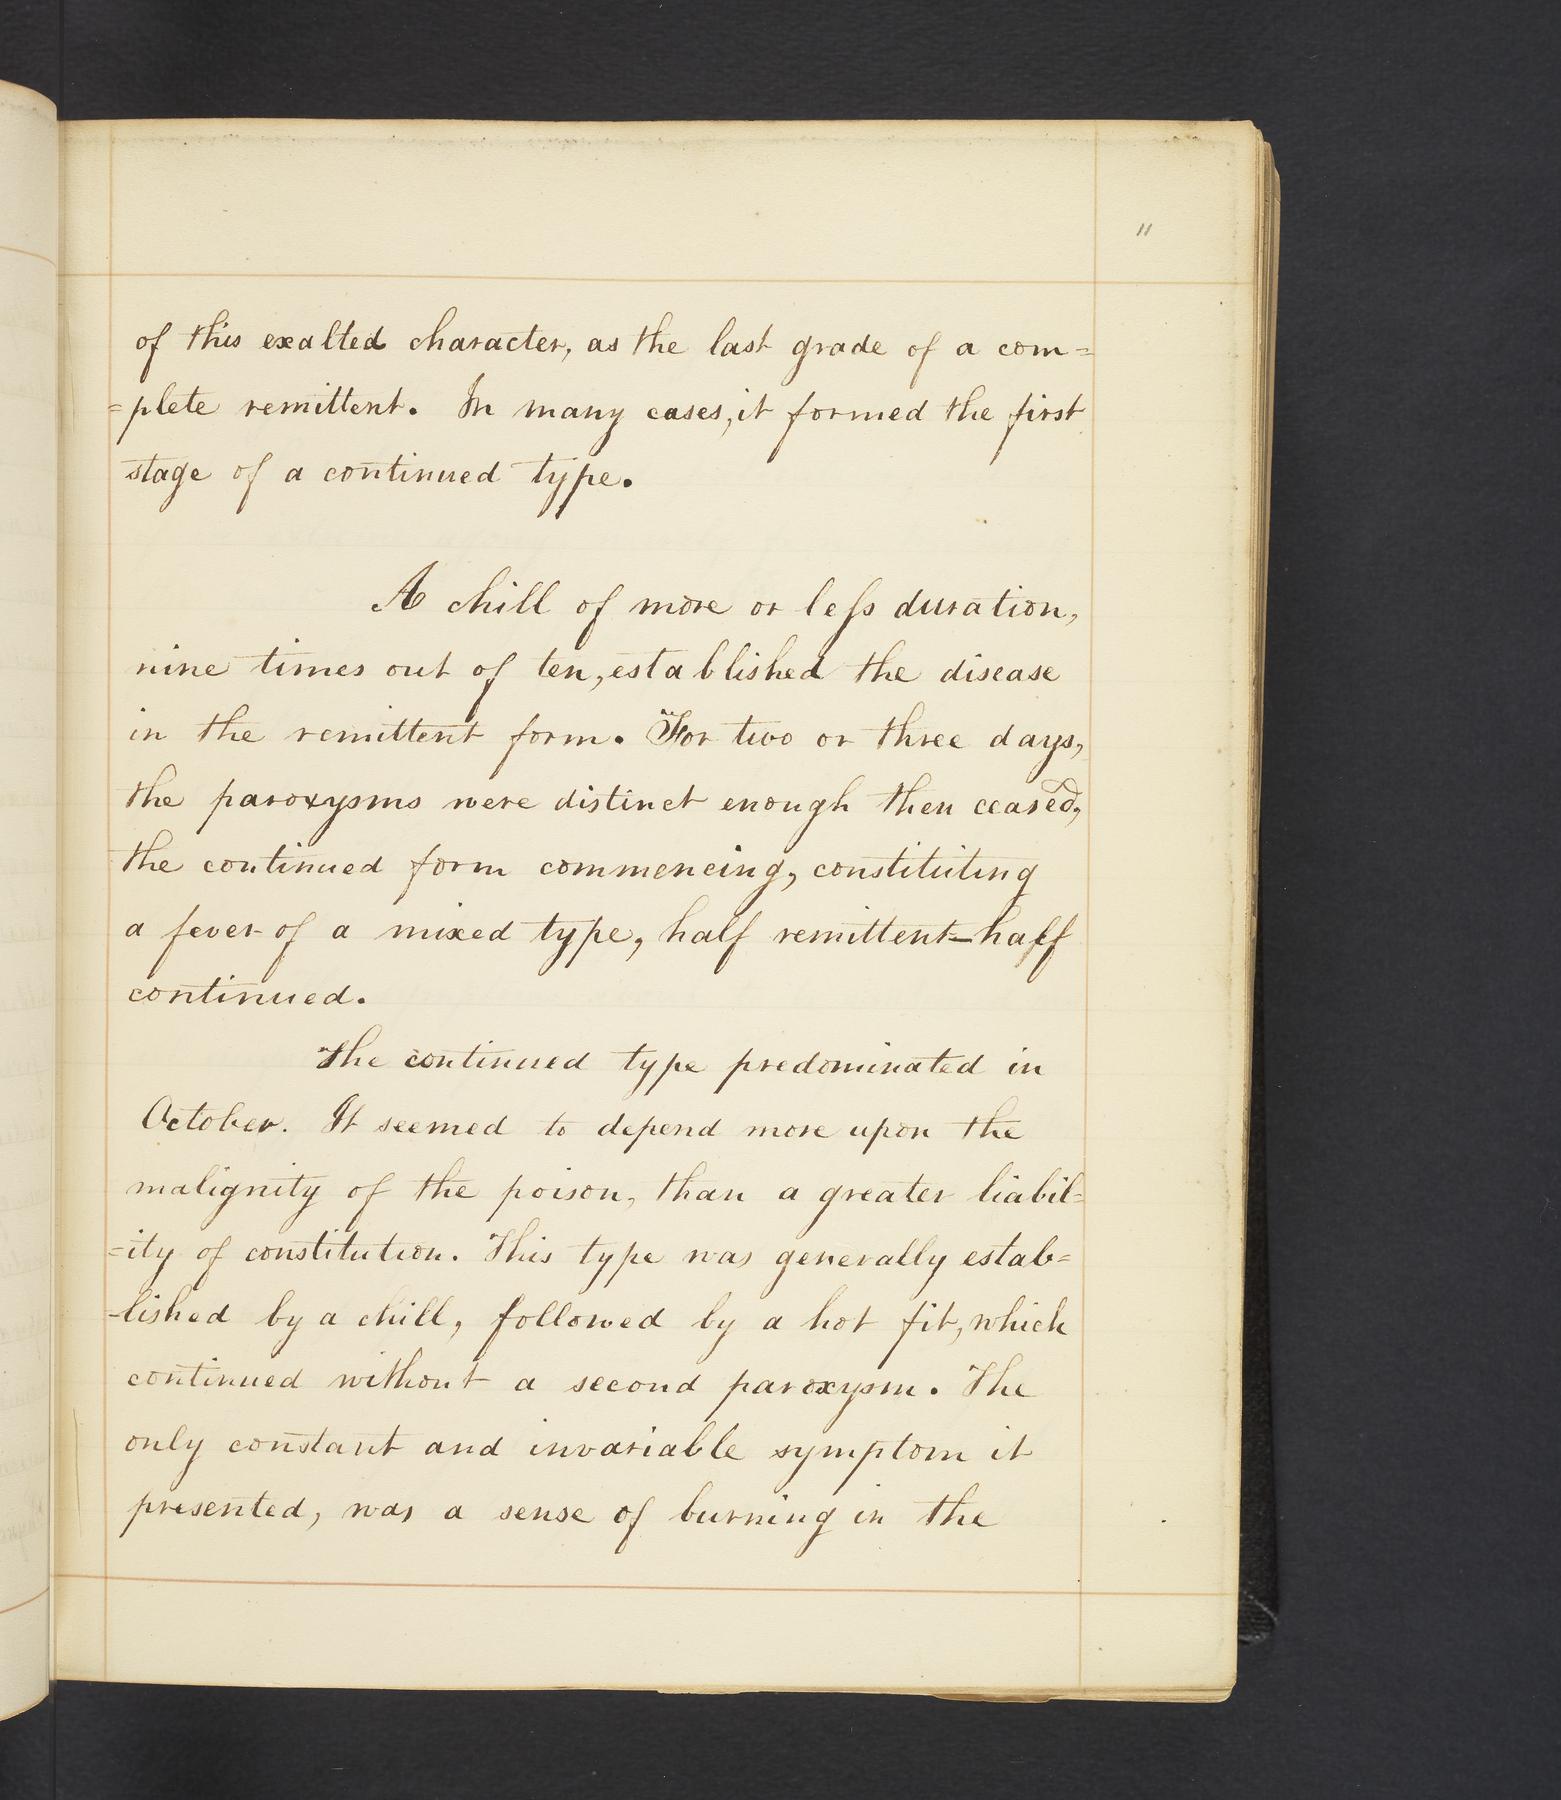 11
of this exalted character, as the last grade of a com=
=plete remittent. In many cases, it formed the first
stage of a continued type.
A chill of more or leſs duration,
nine times out of ten, established the disease
in the remittent form. For two or three days,
the paroxysms were distinct enough then ceased,
the continued form commencing, constituting
a fever of a mixed type, half remittent—half
continued.
The continued type predominated in
October. It seemed to depend more upon the
malignity of the poison, than a greater liabil=
=ity of constitution. This type was generally estab=
-lished by a chill, followed by a hot fit, which
continued without a second paroxysm. The
only constant and invariable symptom it
presented, was a sense of burning in the